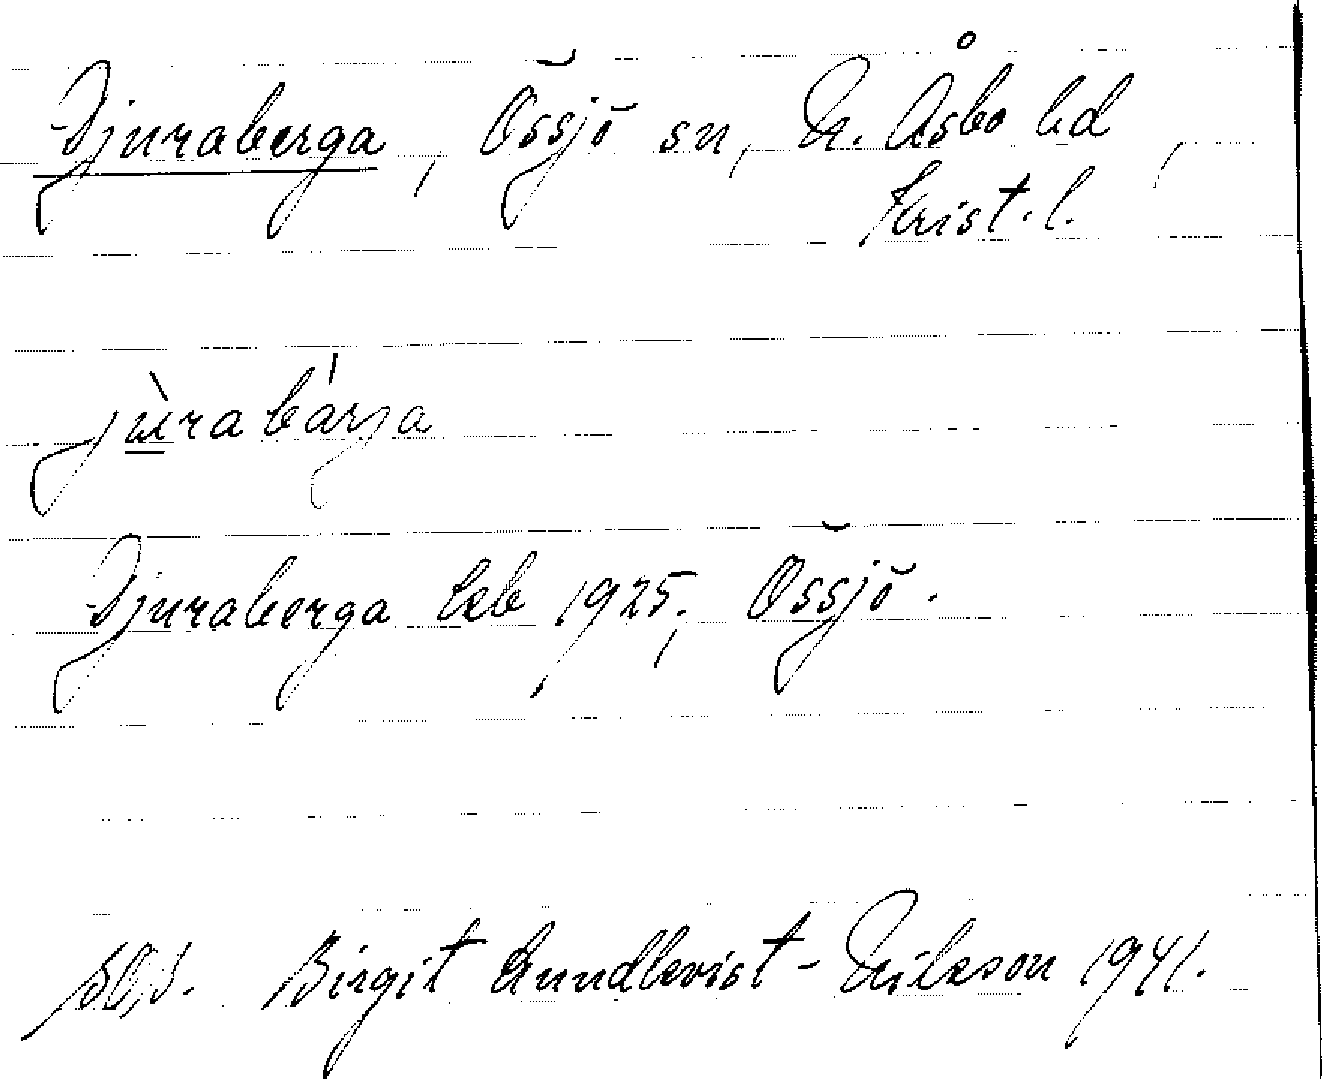 Djuraberga, Össjö sn, N. Åsbo hd,
Krist. l.
jùrabárja
Djuraberga Ekb 1925, Össjö.
Birgit Lundkvist-Nilsson 1941.